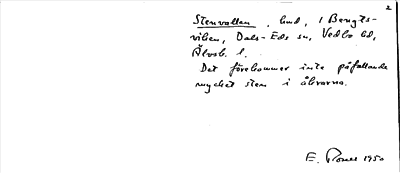 2
Stenvallen, hmd, i Bengts-
viken, Dals-Eds sn, Vedbo hd,
Älvsb. l.
Det förekommer inte påfallande
mycket sten i åkrarna.
E. 1950